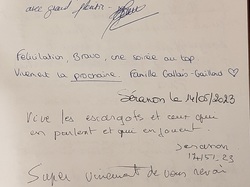 avec grand plaisir.
Felicitation, Bravo, une soirée au top
Vivement la prochaine. Famille Gallais-Gaillard ♡
Séranon le 14/05/2023
Vive les escargots et ceux qui
en parlent et qui en jouent.
Seranon
Super vivement de vous revoir